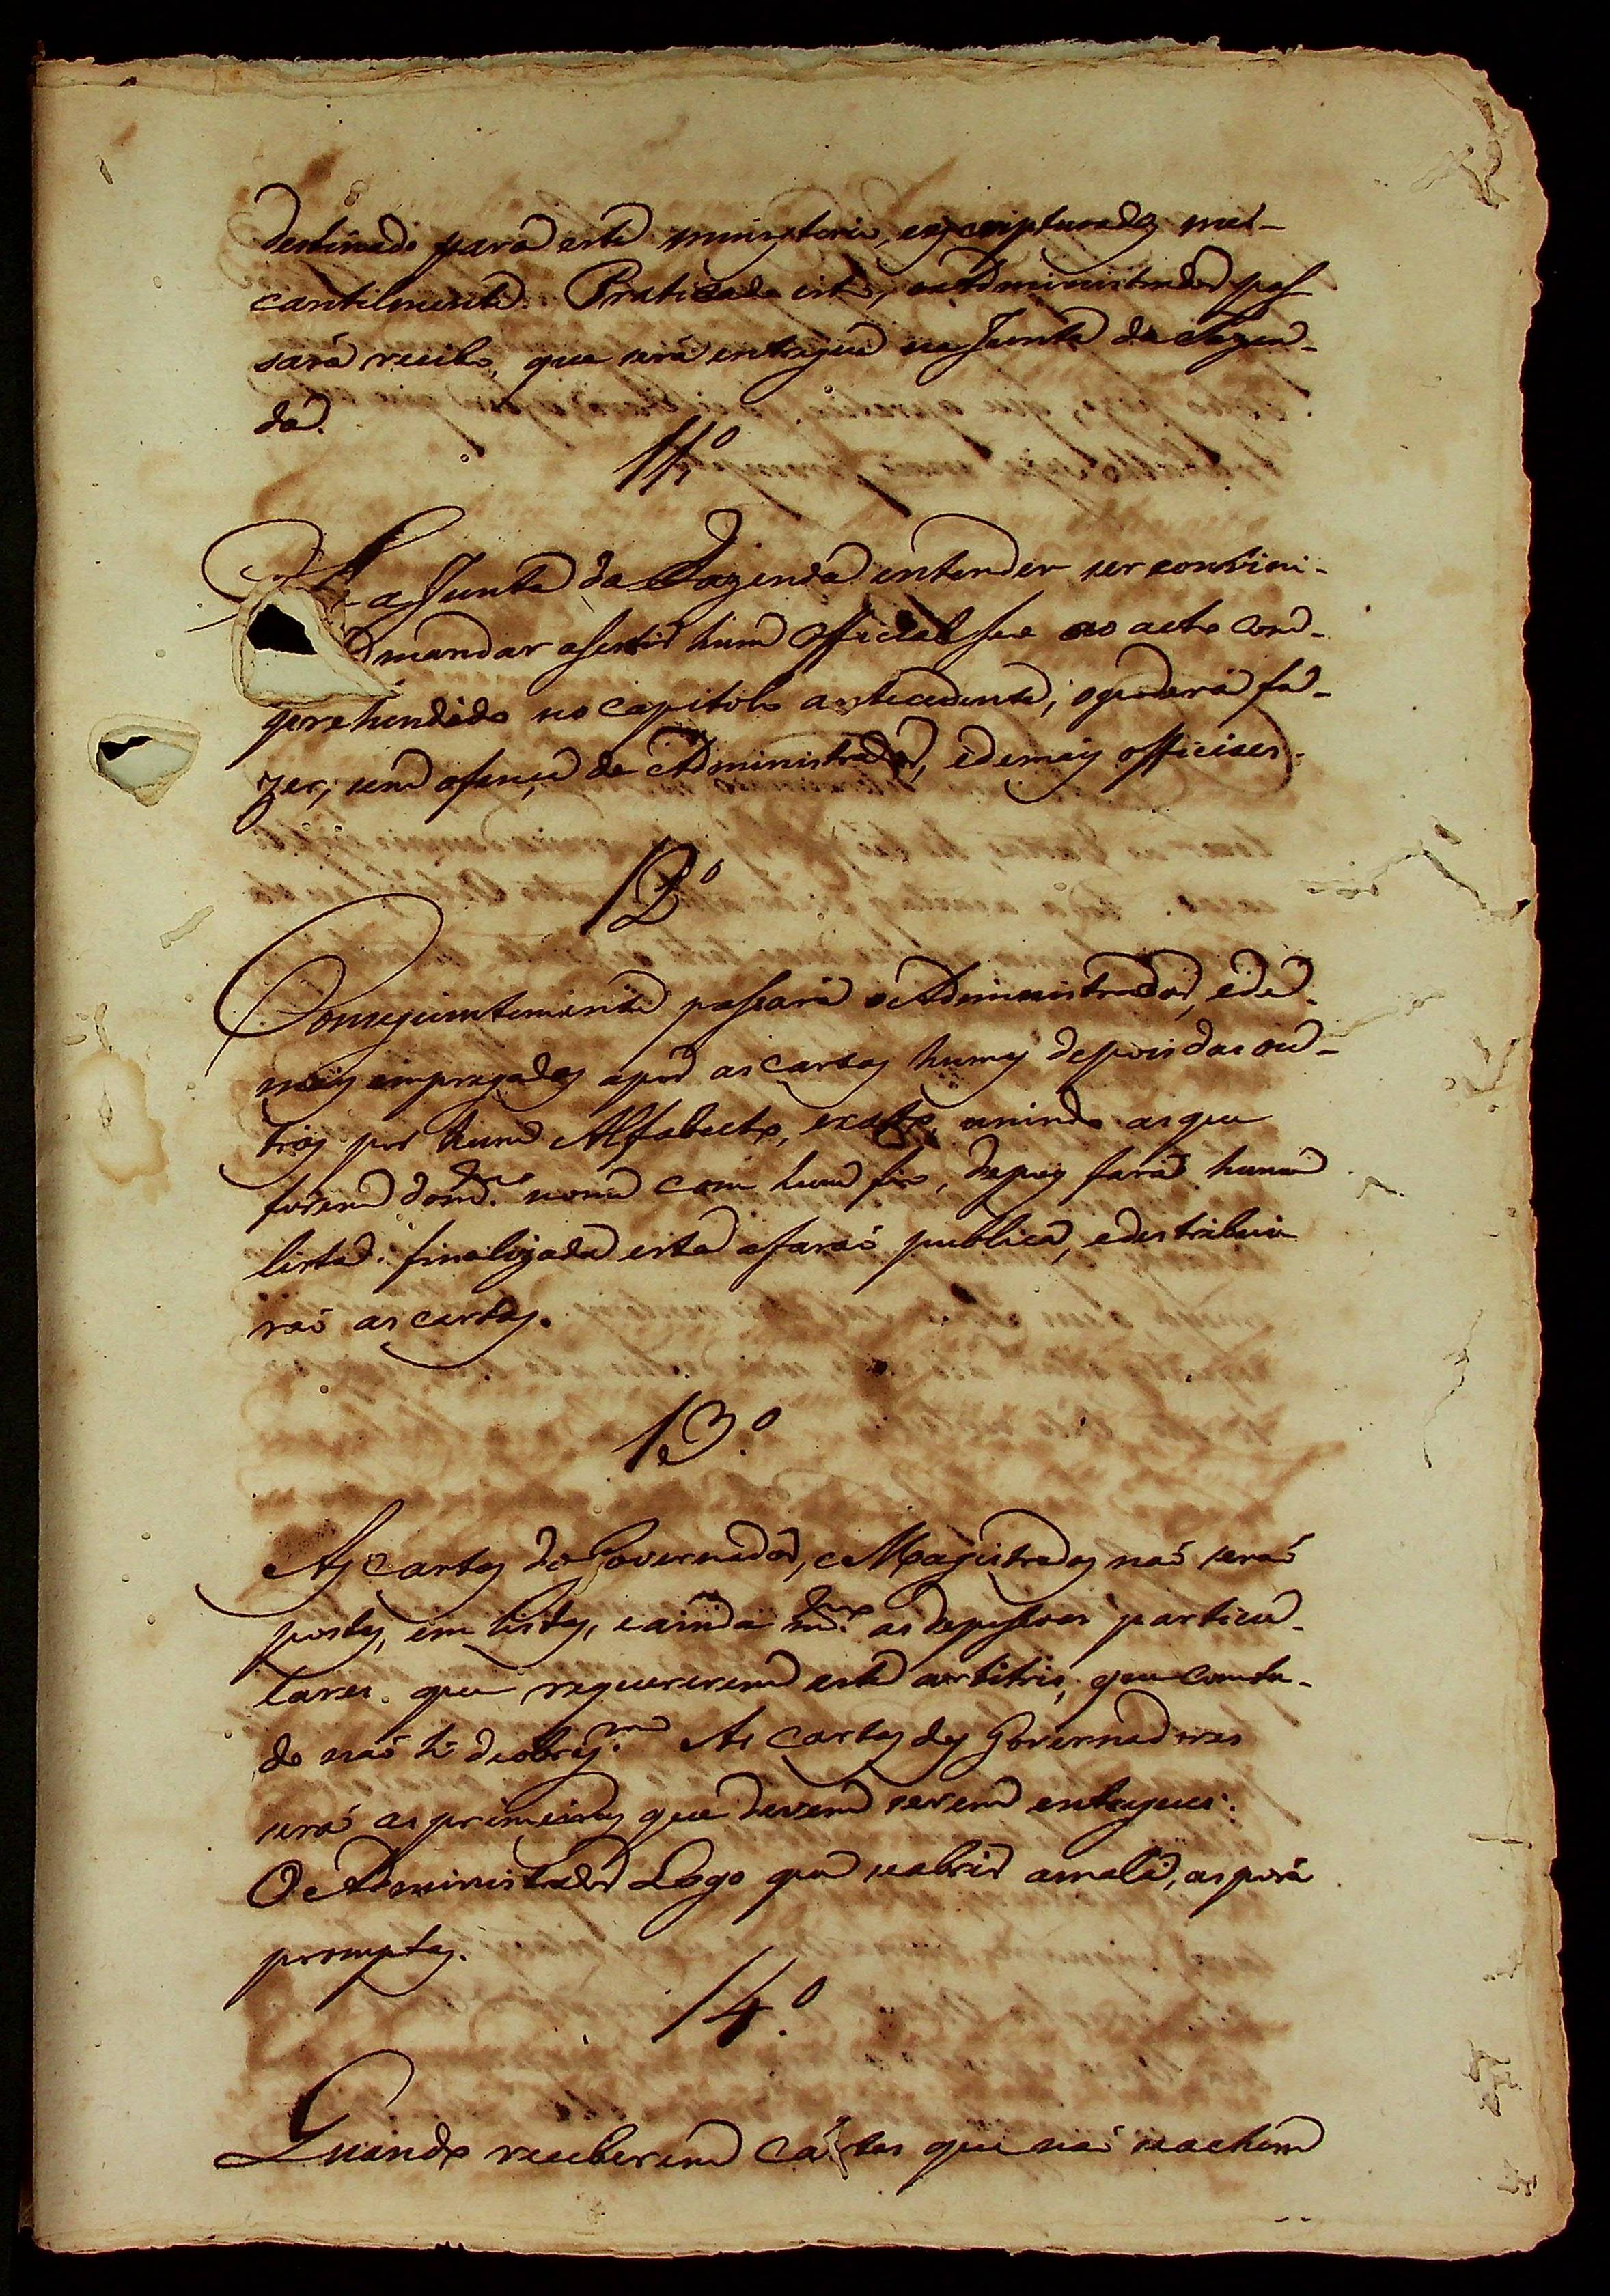 destinado para este ministerio, escripturadas mer-
cantilmente. Praticado isto, o Administrador pas
sará recibo, que será entregue na Junta da Fazen-
da.
11.º
Se a Junta da Fazenda entender ser conveni-
mandar asestir hum Official seu ao acto com-
prehendido no capitolo antecedente, o poderá fa-
zer, sem ofença do Administrador, e demais officiaes.
12º
Conseguintemente passará o Administrador, e de-
mais empregados a por as cartas humas depois das ou-
tras por hum Alfabecto, exacto, unindo as que
forem do m.mo nome com hum fio, depois fará huma
lista: finalizada esta a farão publica, e destribui
rão as cartas.
13.º
As cartas do Governador, e Magistrados não serão
postas em listas, e ainda m.mo as de pessoas particu-
lares que requererem este arbitrio, que comtu-
do não hé de obrig.am As cartas dos Governadores
serão as primeiras que devem serem entregues.
O Administrador Logo que se abrir a mala, as porá
promptas.
14.º
Quando receberem cartas que não se achem